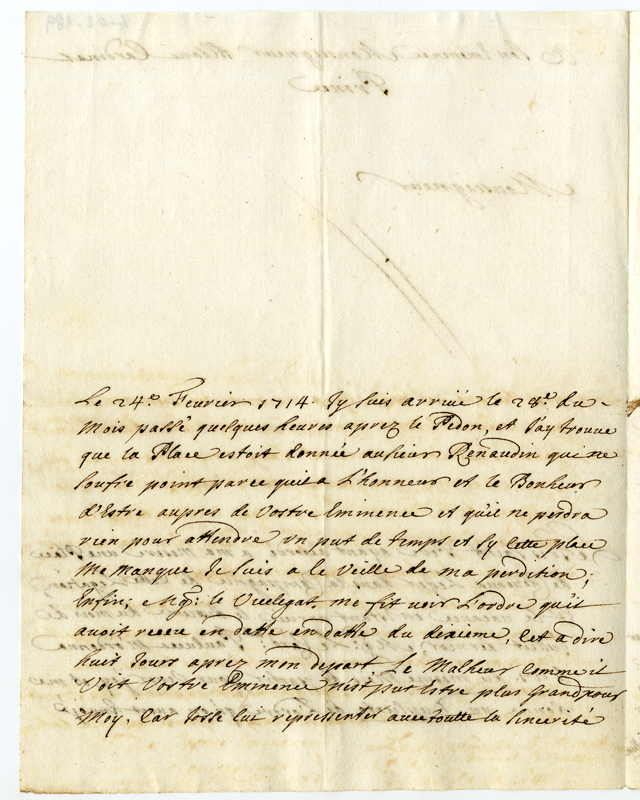 Le 24.e Fevrier 1714. Jy suis arrivé le 28.e du
Mois passé quelques heures aprez le Pedon, et J'ay trouvé
que la Place estoit donnée au sieur Renaudin qui ne
soufre point parce quil a L'honneur et le Bonheur
d'Estre aupres de Vostre Eminence et qu'il ne perdra
rien pour attendre un put de temps et sy Cette place
Me manque Je suis a le Veille de ma perdition;
Enfin; Mgr: le Vicelegat. me fit voir L'ordre qu'il
avoit receu en datte en datte du dixieme, C'et a dire
huit Jours aprez mon depart Le Malheur Comme il
Voit Vostre Eminence n'est put Estre plus Grand pour
Moy. Car J'osse luy representer avec toutte la sincerité